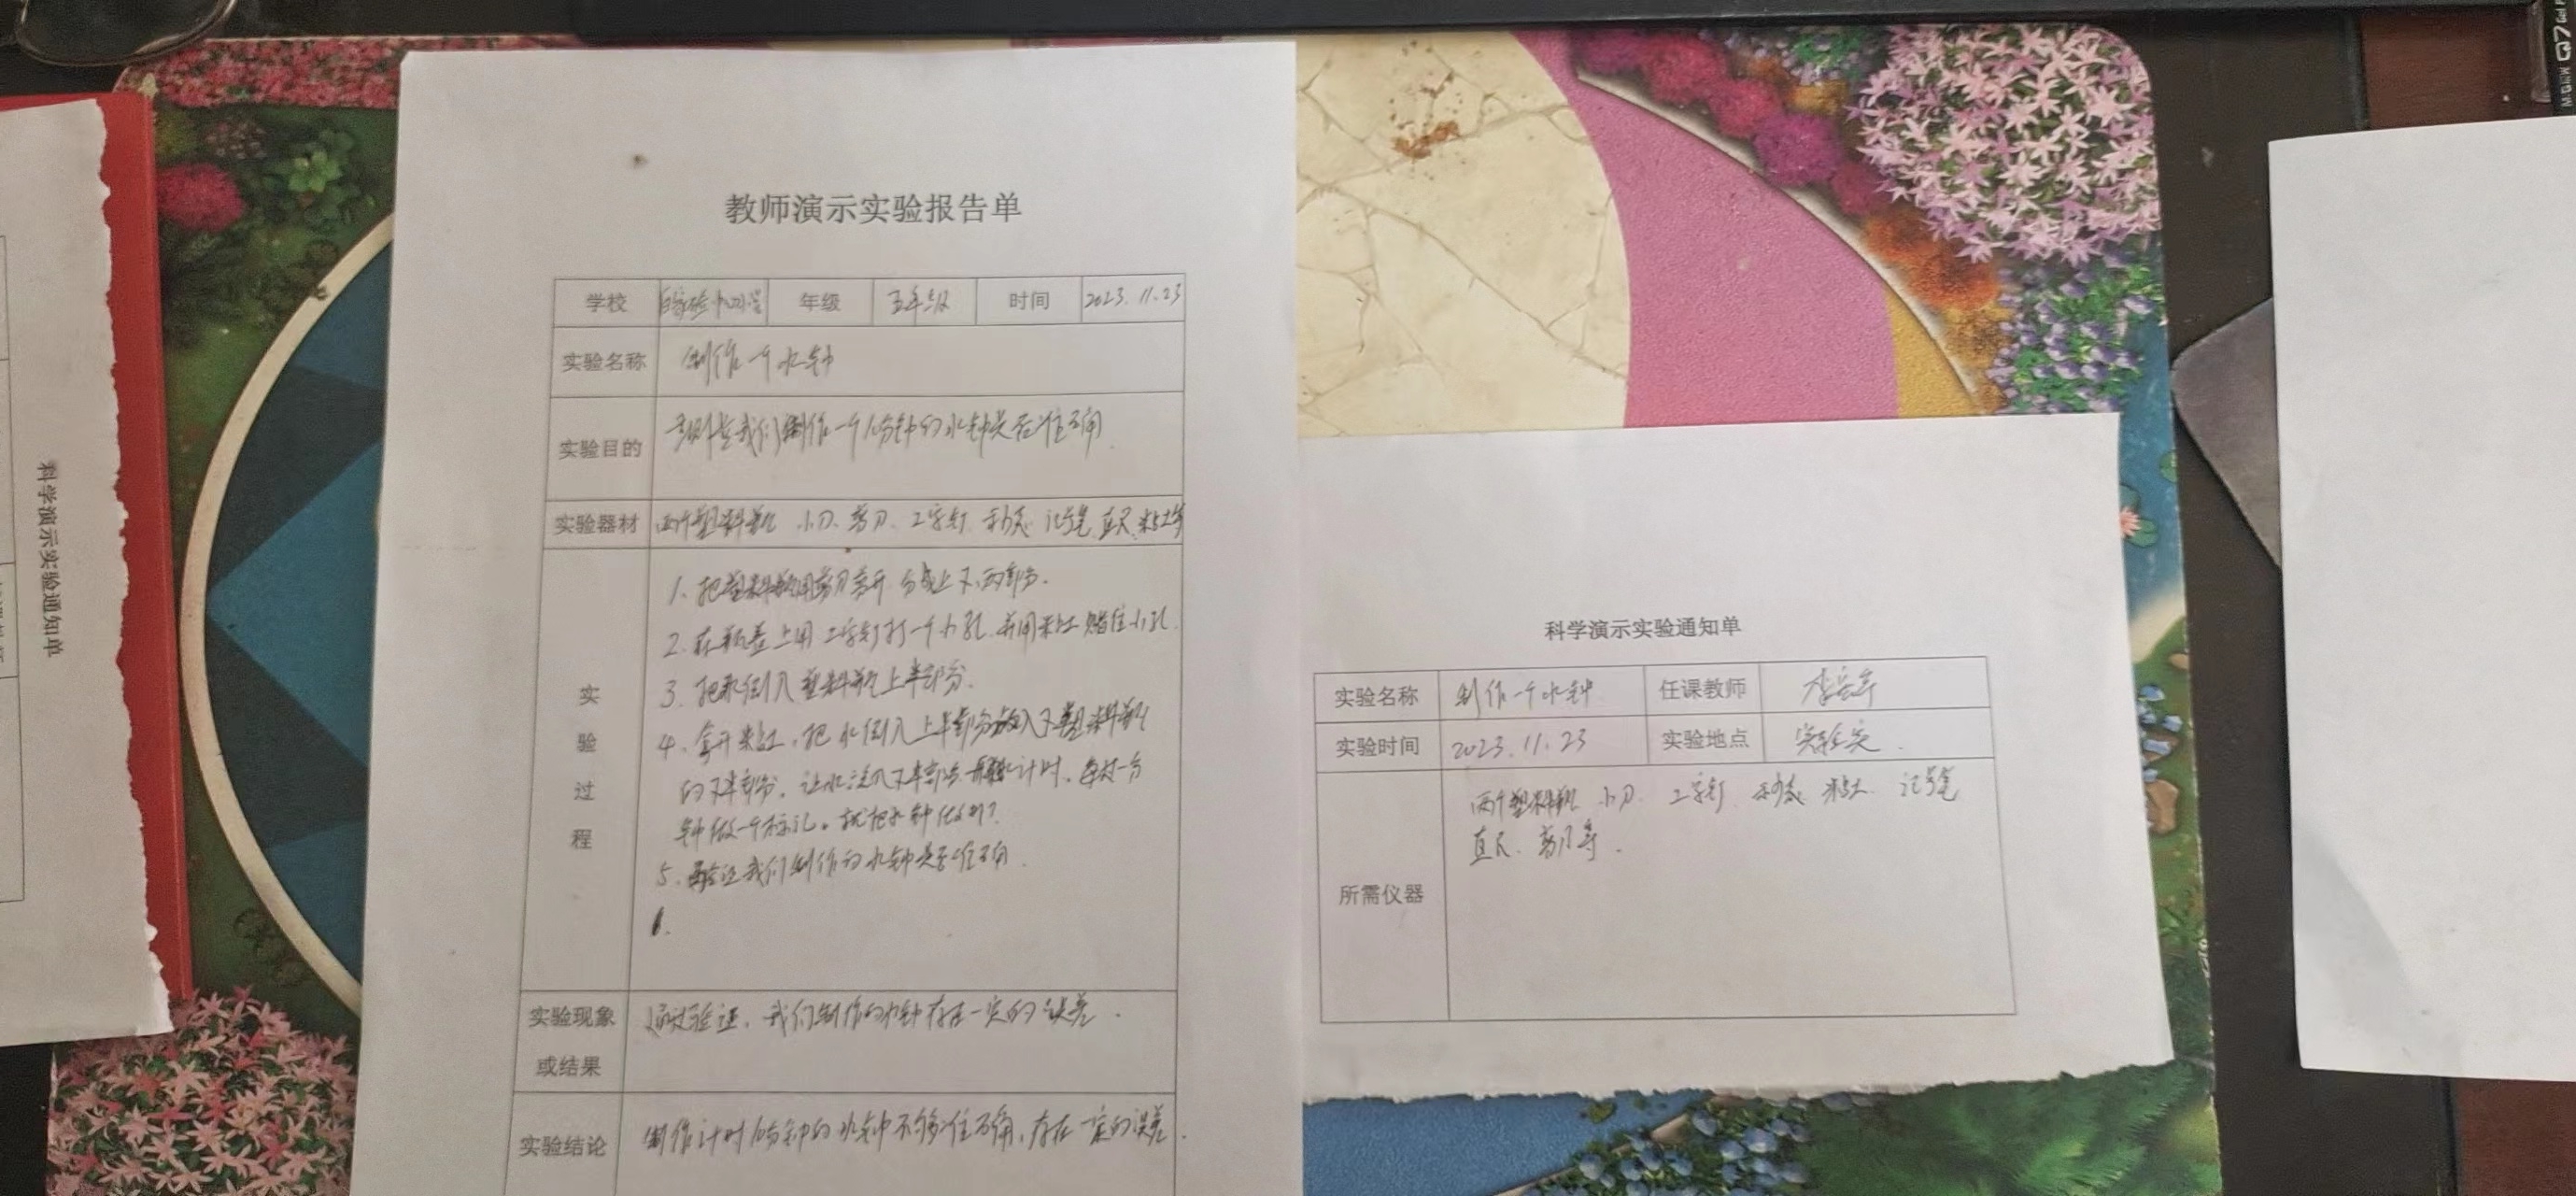 教师演示实验报告单
学校 年级 五年级 时间 2023.11.23
实验名称 制作一个水钟
实验目的 我们制作一个10分钟的水钟是否准确
实验器材 两个塑料瓶 小刀、剪刀、工字钉 记号笔 直尺 粘土等
实验过程
1、把塑料瓶用剪刀剪开 分成上下两部分.
2、在瓶盖上用工字钉打一个小孔.并用粘土堵住小孔.
3、把水倒入塑料瓶上半部分.
4、拿开粘土,把水倒入上半部分放入下塑料瓶
的下半部分,让水流入下半部分 计时,每过一分
钟做一个标记。就把水钟做好了.
5、验证我们制作的水钟是否准确.
实验现象
或结果 通过验证,我们制作的水钟存在一定的误差.
实验结论 制作计时10分钟的水钟不够准确,存在一定的误差.
科学演示实验通知单
实验名称 制作一个水钟 任课教师
实验时间 2023.11.23 实验地点 实验室.
所需仪器 两个塑料瓶 小刀. 工字钉 粘土. 记号笔
直尺. 剪刀等.
科学演示实验通知单